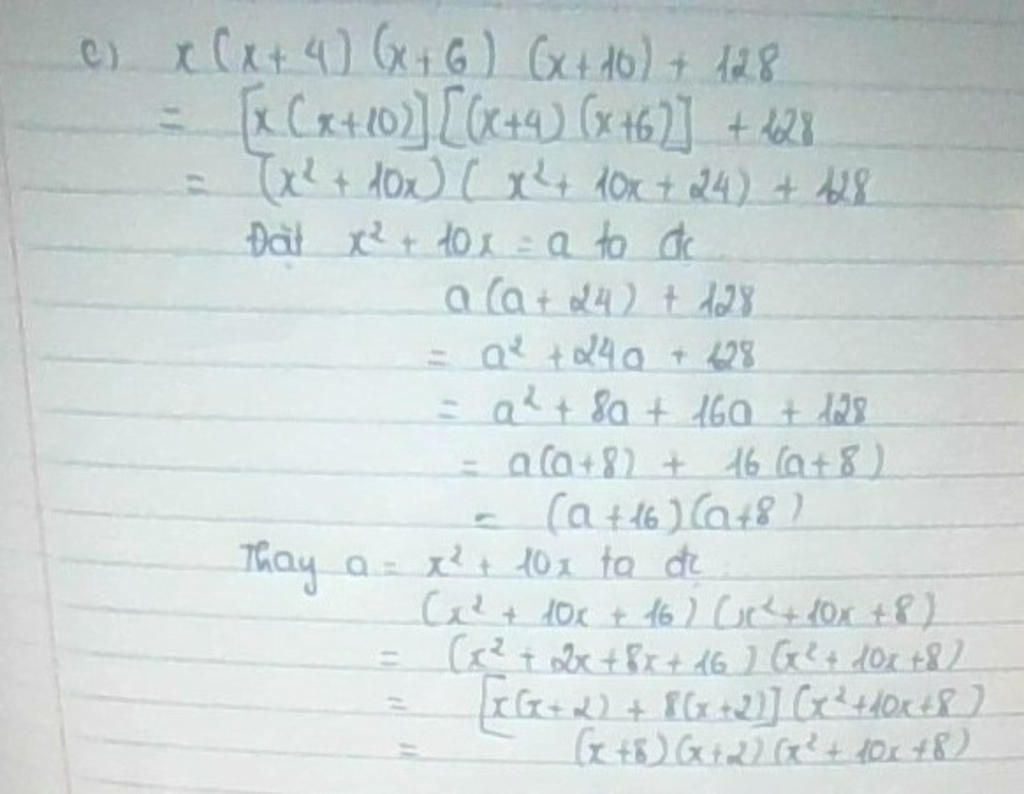 c) x(x+4)(x+6)(x+10) + 128
= [x(x+10)][(x+4)(x+6)] + 128
= (x² + 10x)(x² + 10x + 24) + 128
Đặt x² + 10x = a ta đc
a(a + 24) + 128
= a² + 24a + 128
= a² + 8a + 16a + 128
= a(a+8) + 16(a+8)
= (a + 16)(a+8)
Thay a = x² + 10x ta đc
(x² + 10x + 16)(x² + 10x + 8)
= (x² + 2x + 8x + 16)(x² + 10x + 8)
= [x(x+2) + 8(x+2)](x² + 10x + 8)
= (x+8)(x+2)(x² + 10x + 8)